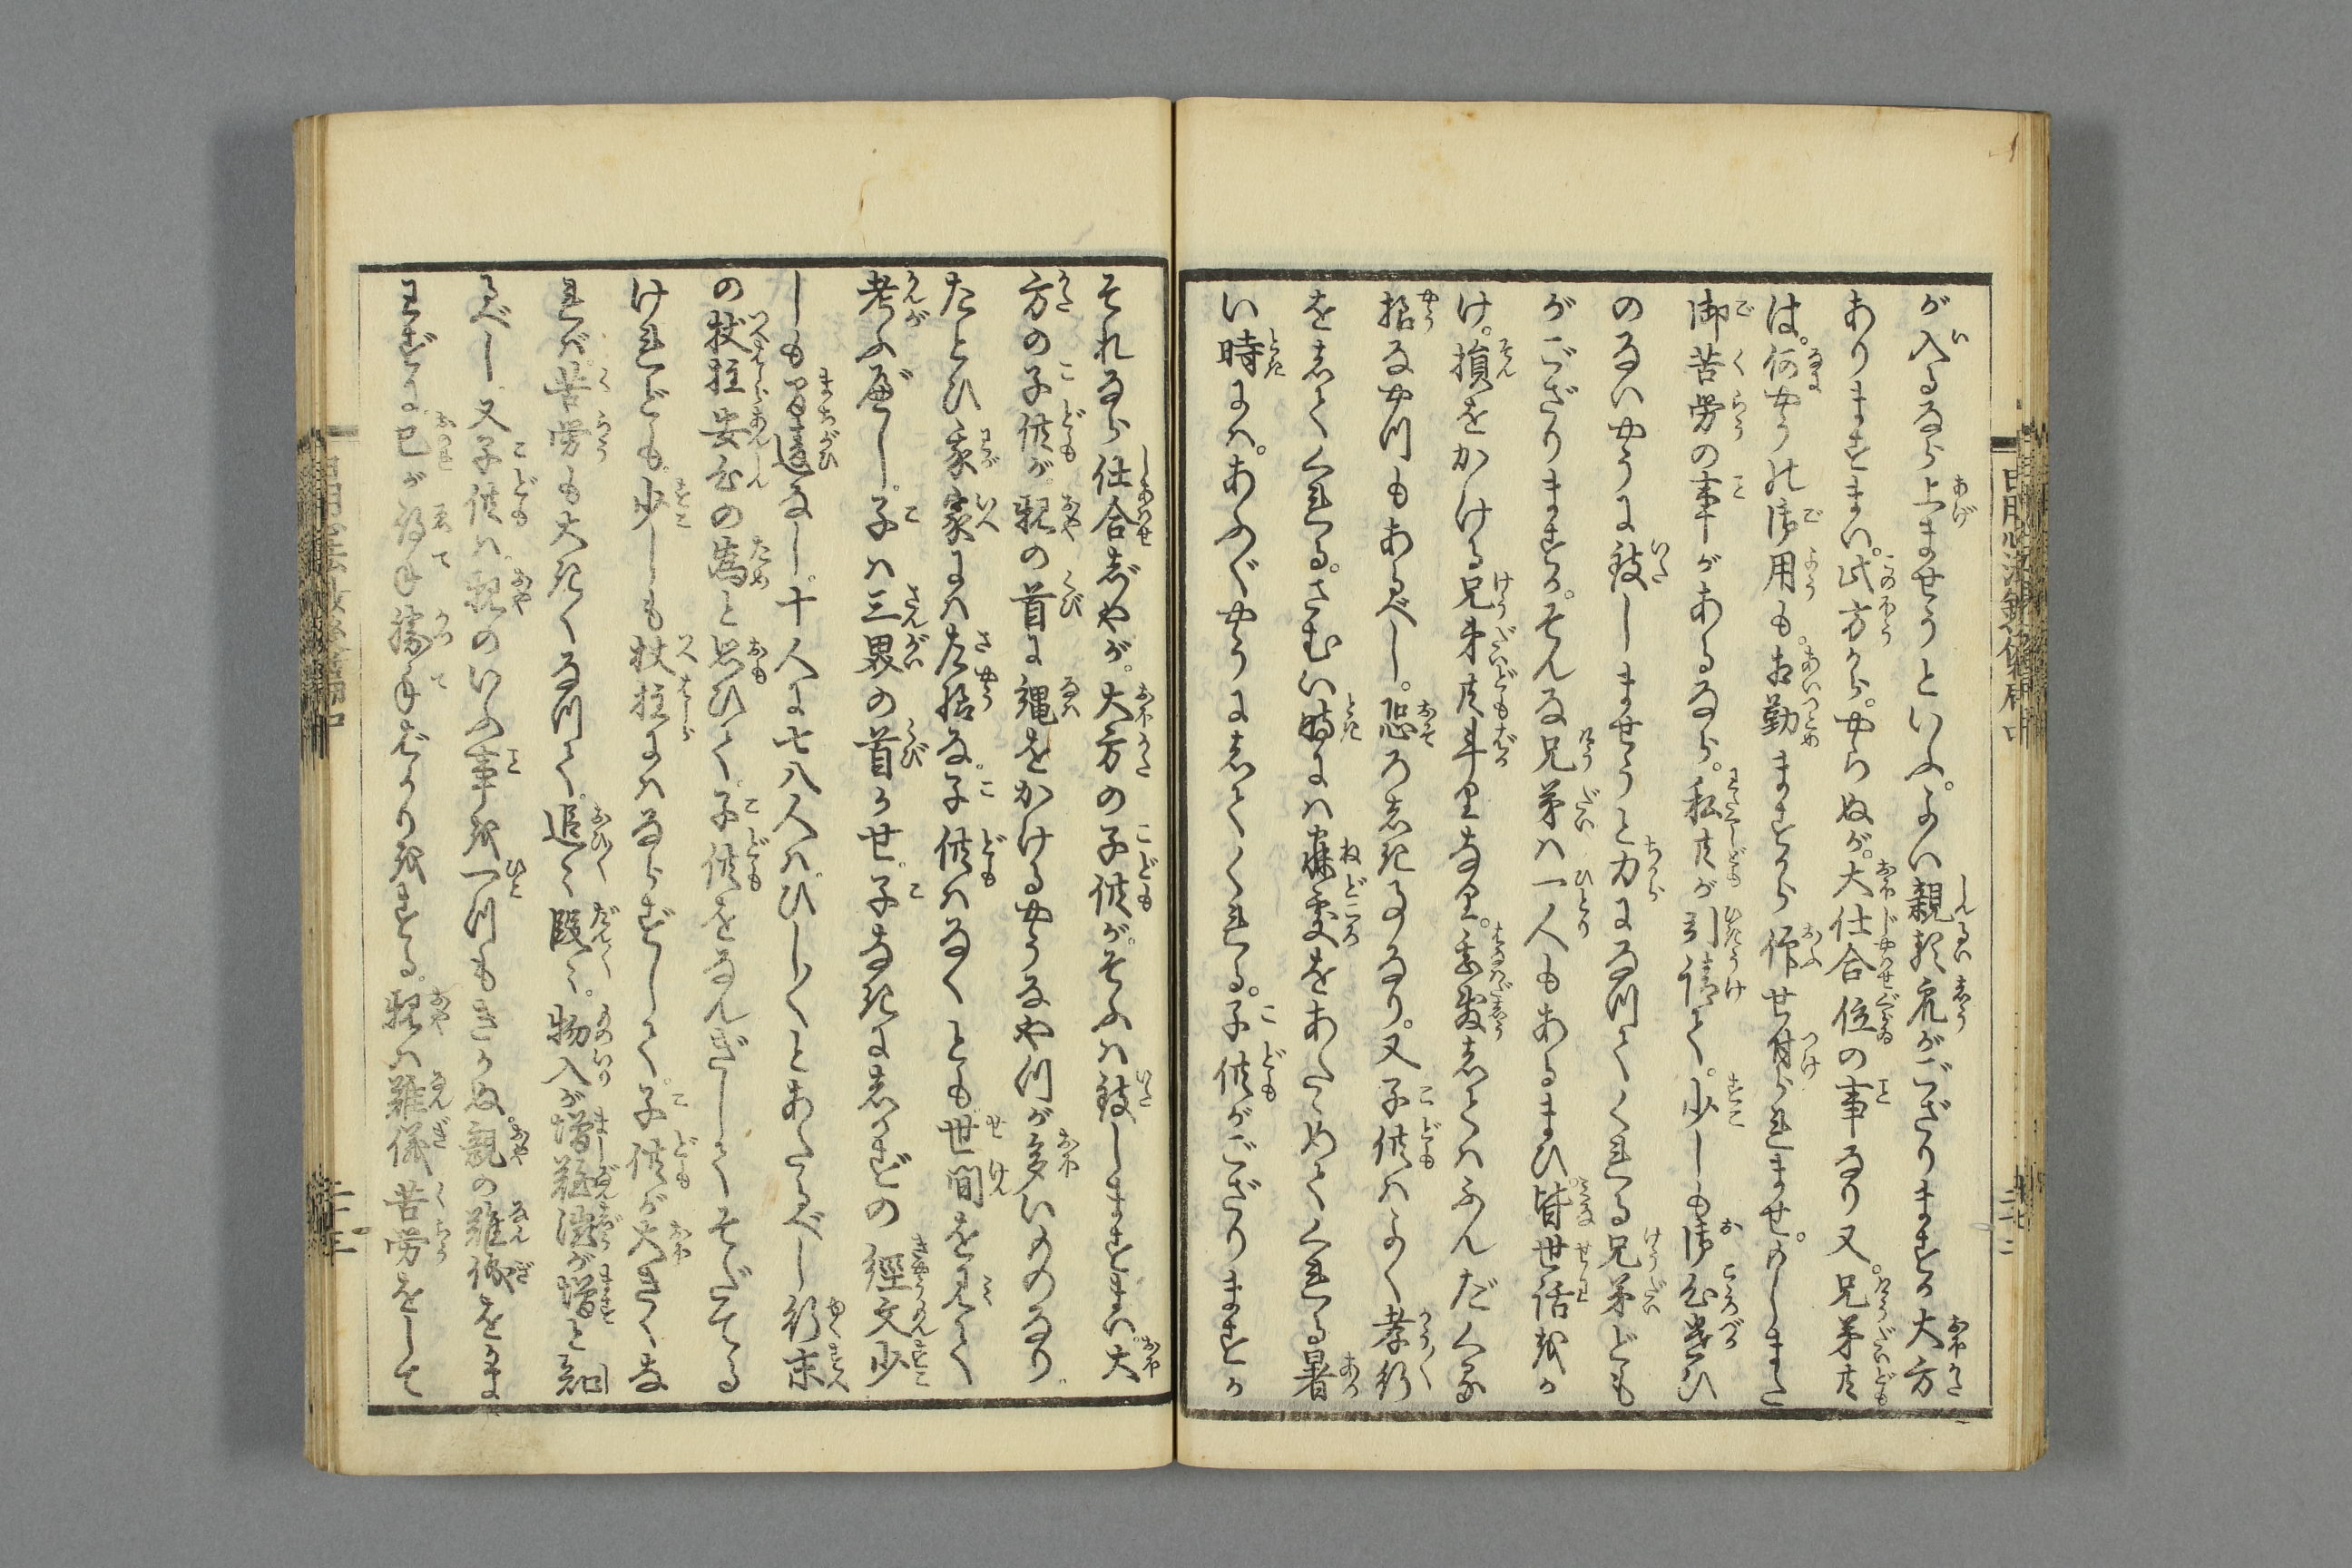 が入るなら上ませうといふ。よい親類衆がござりますか大方
ありますまい。此方から。やらぬが。大仕合位の事なり又。兄弟共
は。何やうの御用も。相勤ますから仰せ付られませ。もしまた
御苦労の事があるなら。私共が引請て。少しも御心遣ひ
のないやうに致しませうと力になつてくれる兄弟ども
がござりますか。そんな兄弟は一人もあるまひ。皆世話をか
け。損をかける兄弟共斗りなり。
やうなやつもあるべし。恐ろしき事なり。又子供はよく孝行
をしてくれる。さむい時には寝処をあたゝめてくれる暑
い時には。あふぐやうにしてくれる。子供がござりますか
それなら仕合じやが。大方の子供が。そふは致しますまい。大
方の子供が。親の首に縄をかけるやうなやつが多いものなり。
たとひ我家には左様な。子供はなくとも世間を見て
考ふべし。子は三界の首かせ。子なきにしかずの經文少
しも間違なし。十人に七八人は。ひし〳〵とあたるべし行末
の杖柱安心の為と思ひて。子供をなんぎしてそだてる
けれども。少しも杖柱にはならずして。子供が大きくな
れば。苦労も大きくなつて。追々段々。物入が増難澁が増と知
るべし。又子供は。親のいふ事を一つもきかぬ。親の難儀をかま
はずに己が得手勝手ばかりをする。親は難儀苦労をして